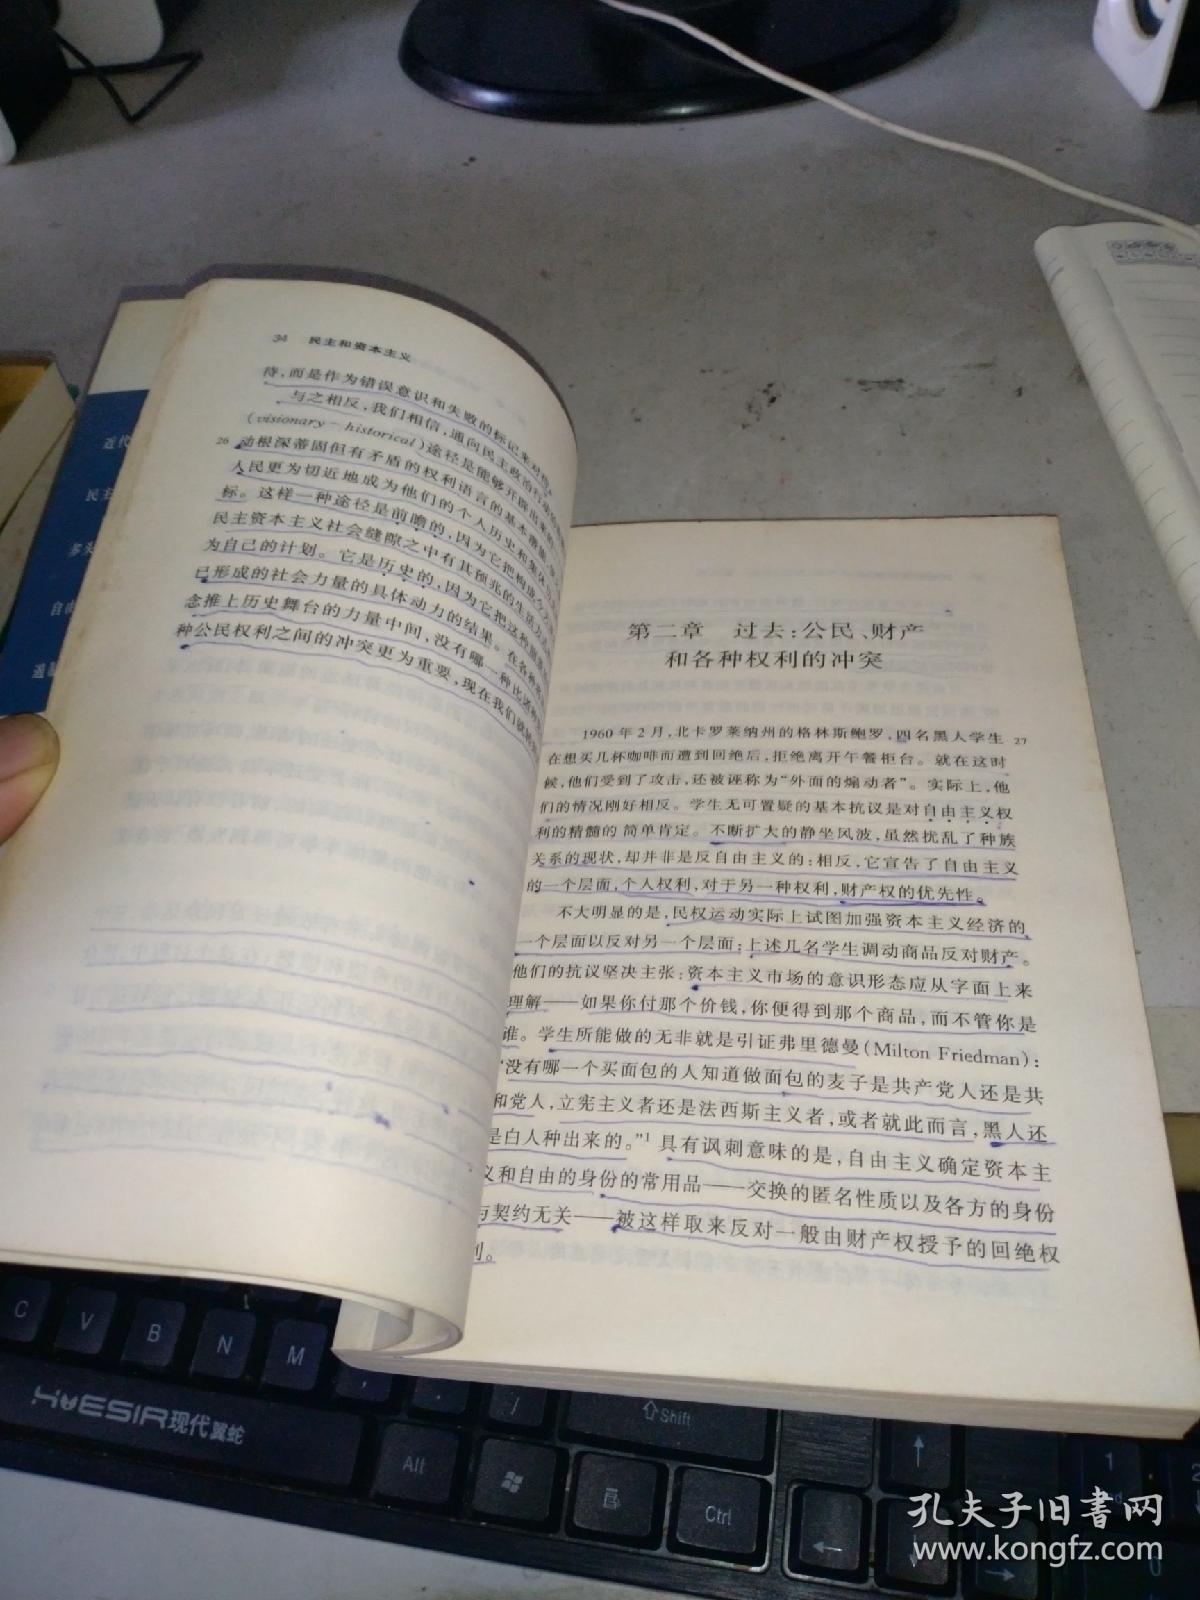 34 民主和资本主义
待,而是作为错误意识和失败的标记来对待。
与之相反,我们相信,通向民主政治行动的
(visionary-historical)途径是能够开辟出来的
26 动根深蒂固但有矛盾的权利语言的基本潜能
人民更为切近地成为他们的个人历史和集体
标。这样一种途径是前瞻的,因为它把构成今
民主资本主义社会缝隙之中有其预兆的生活方式
为自己的计划。它是历史的,因为它把这种
已形成的社会力量的具体动力的结果。在各种
念推上历史舞台的力量中间,没有哪一种比这种
种公民权利之间的冲突更为重要,现在我们就
第二章 过去:公民、财产
和各种权利的冲突
1960年2月,北卡罗莱纳州的格林斯鲍罗,四名黑人学生 27
在想买几杯咖啡而遭到回绝后,拒绝离开午餐柜台。就在这时
候,他们受到了攻击,还被诬称为“外面的煽动者”。实际上,他
们的情况刚好相反。学生无可置疑的基本抗议是对自由主义权
利的精髓的简单肯定。不断扩大的静坐风波,虽然扰乱了种族
关系的现状,却并非是反自由主义的;相反,它宣告了自由主义
的一个层面,个人权利,对于另一种权利,财产权的优先性。
不大明显的是,民权运动实际上试图加强资本主义经济的
一个层面以反对另一个层面;上述几名学生调动商品反对财产。
他们的抗议坚决主张:资本主义市场的意识形态应从字面上来
理解——如果你付那个价钱,你便得到那个商品,而不管你是
谁。学生所能做的无非就是引证弗里德曼(Milton Friedman):
“没有哪一个买面包的人知道做面包的麦子是共产党人还是共
和党人,立宪主义者还是法西斯主义者,或者就此而言,黑人还
是白人种出来的。”1 具有讽刺意味的是,自由主义确定资本主
义和自由的身份的常用品——交换的匿名性质以及各方的身份
与契约无关——被这样取来反对一般由财产权授予的回绝权
利。
近代
民主
多头
自由
C V B N M
, . /
Shift
HYESIR现代翼蛇
Alt
Ctrl
1
2
0
孔夫子旧书网
www.kongfz.com